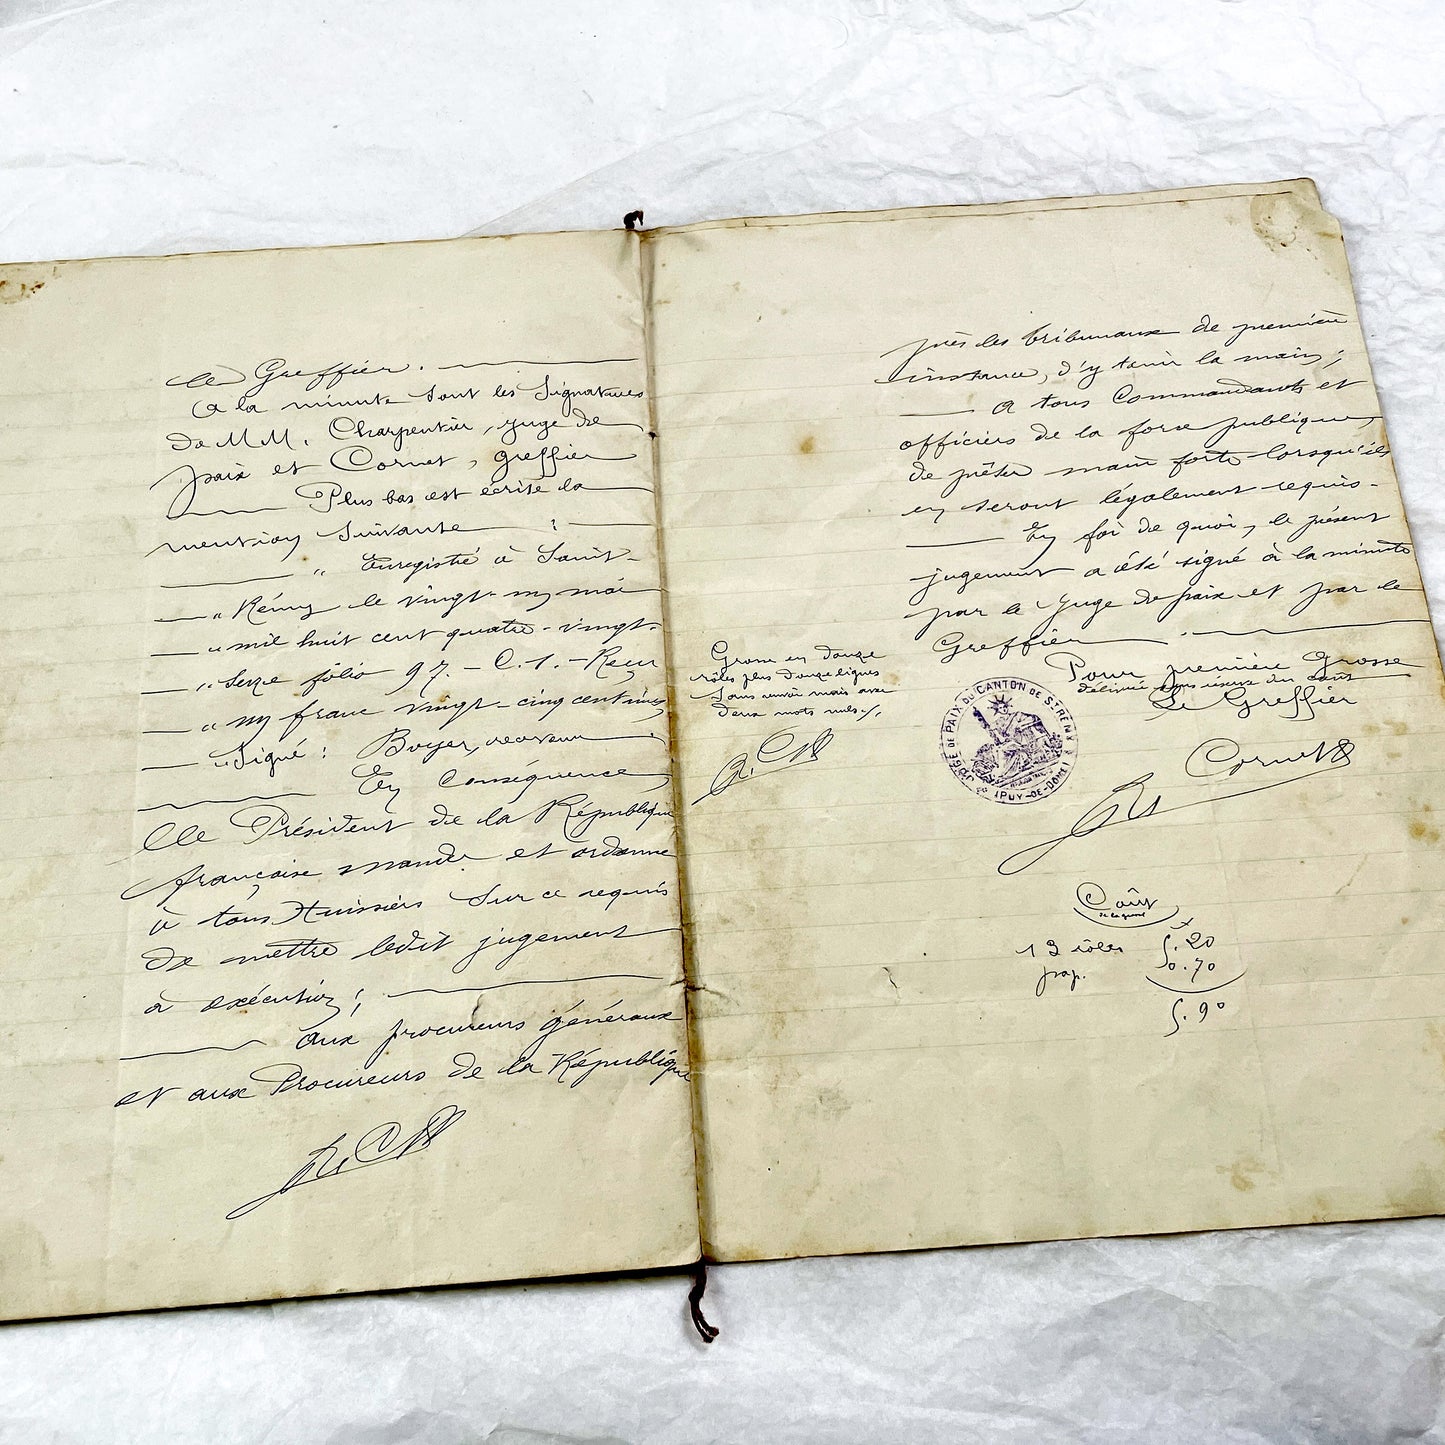 le Greffier.
A la minute sont les signatures
de MM. Charpentier, juge de
paix et Cornet, greffier
Plus bas est écrite la
mention suivante :
" Enregistré à Saint-
" Rémy le vingt-un mai
" mil huit cent quatre-vingt-
" seize folio 97. - C. 1. - Reçu
" un franc vingt-cinq centimes
" Signé : Boyer, receveur.
En conséquence,
Le Président de la République
française mande et ordonne
à tous Huissiers sur ce requis
de mettre ledit jugement
à exécution;
aux procureurs généraux
et aux Procureurs de la République
près les tribunaux de première
instance, d'y tenir la main;
A tous Commandants et
officiers de la force publique,
de prêter main forte lorsqu'ils
en seront légalement requis.
En foi de quoi, le présent
jugement a été signé à la minute
par le Juge de paix et par le
Greffier.
Pour première Grosse
délivrée
Le Greffier
Cornet
Grosse en douze
rôles plus douze lignes
sans renvoi mais avec
deux mots nuls./.
JUSTICE DE PAIX DU CANTON DE ST REMY
(PUY-DE-DOME)
Coût
de la grosse
12 rôles 5.20
pap. 0.70
5.90